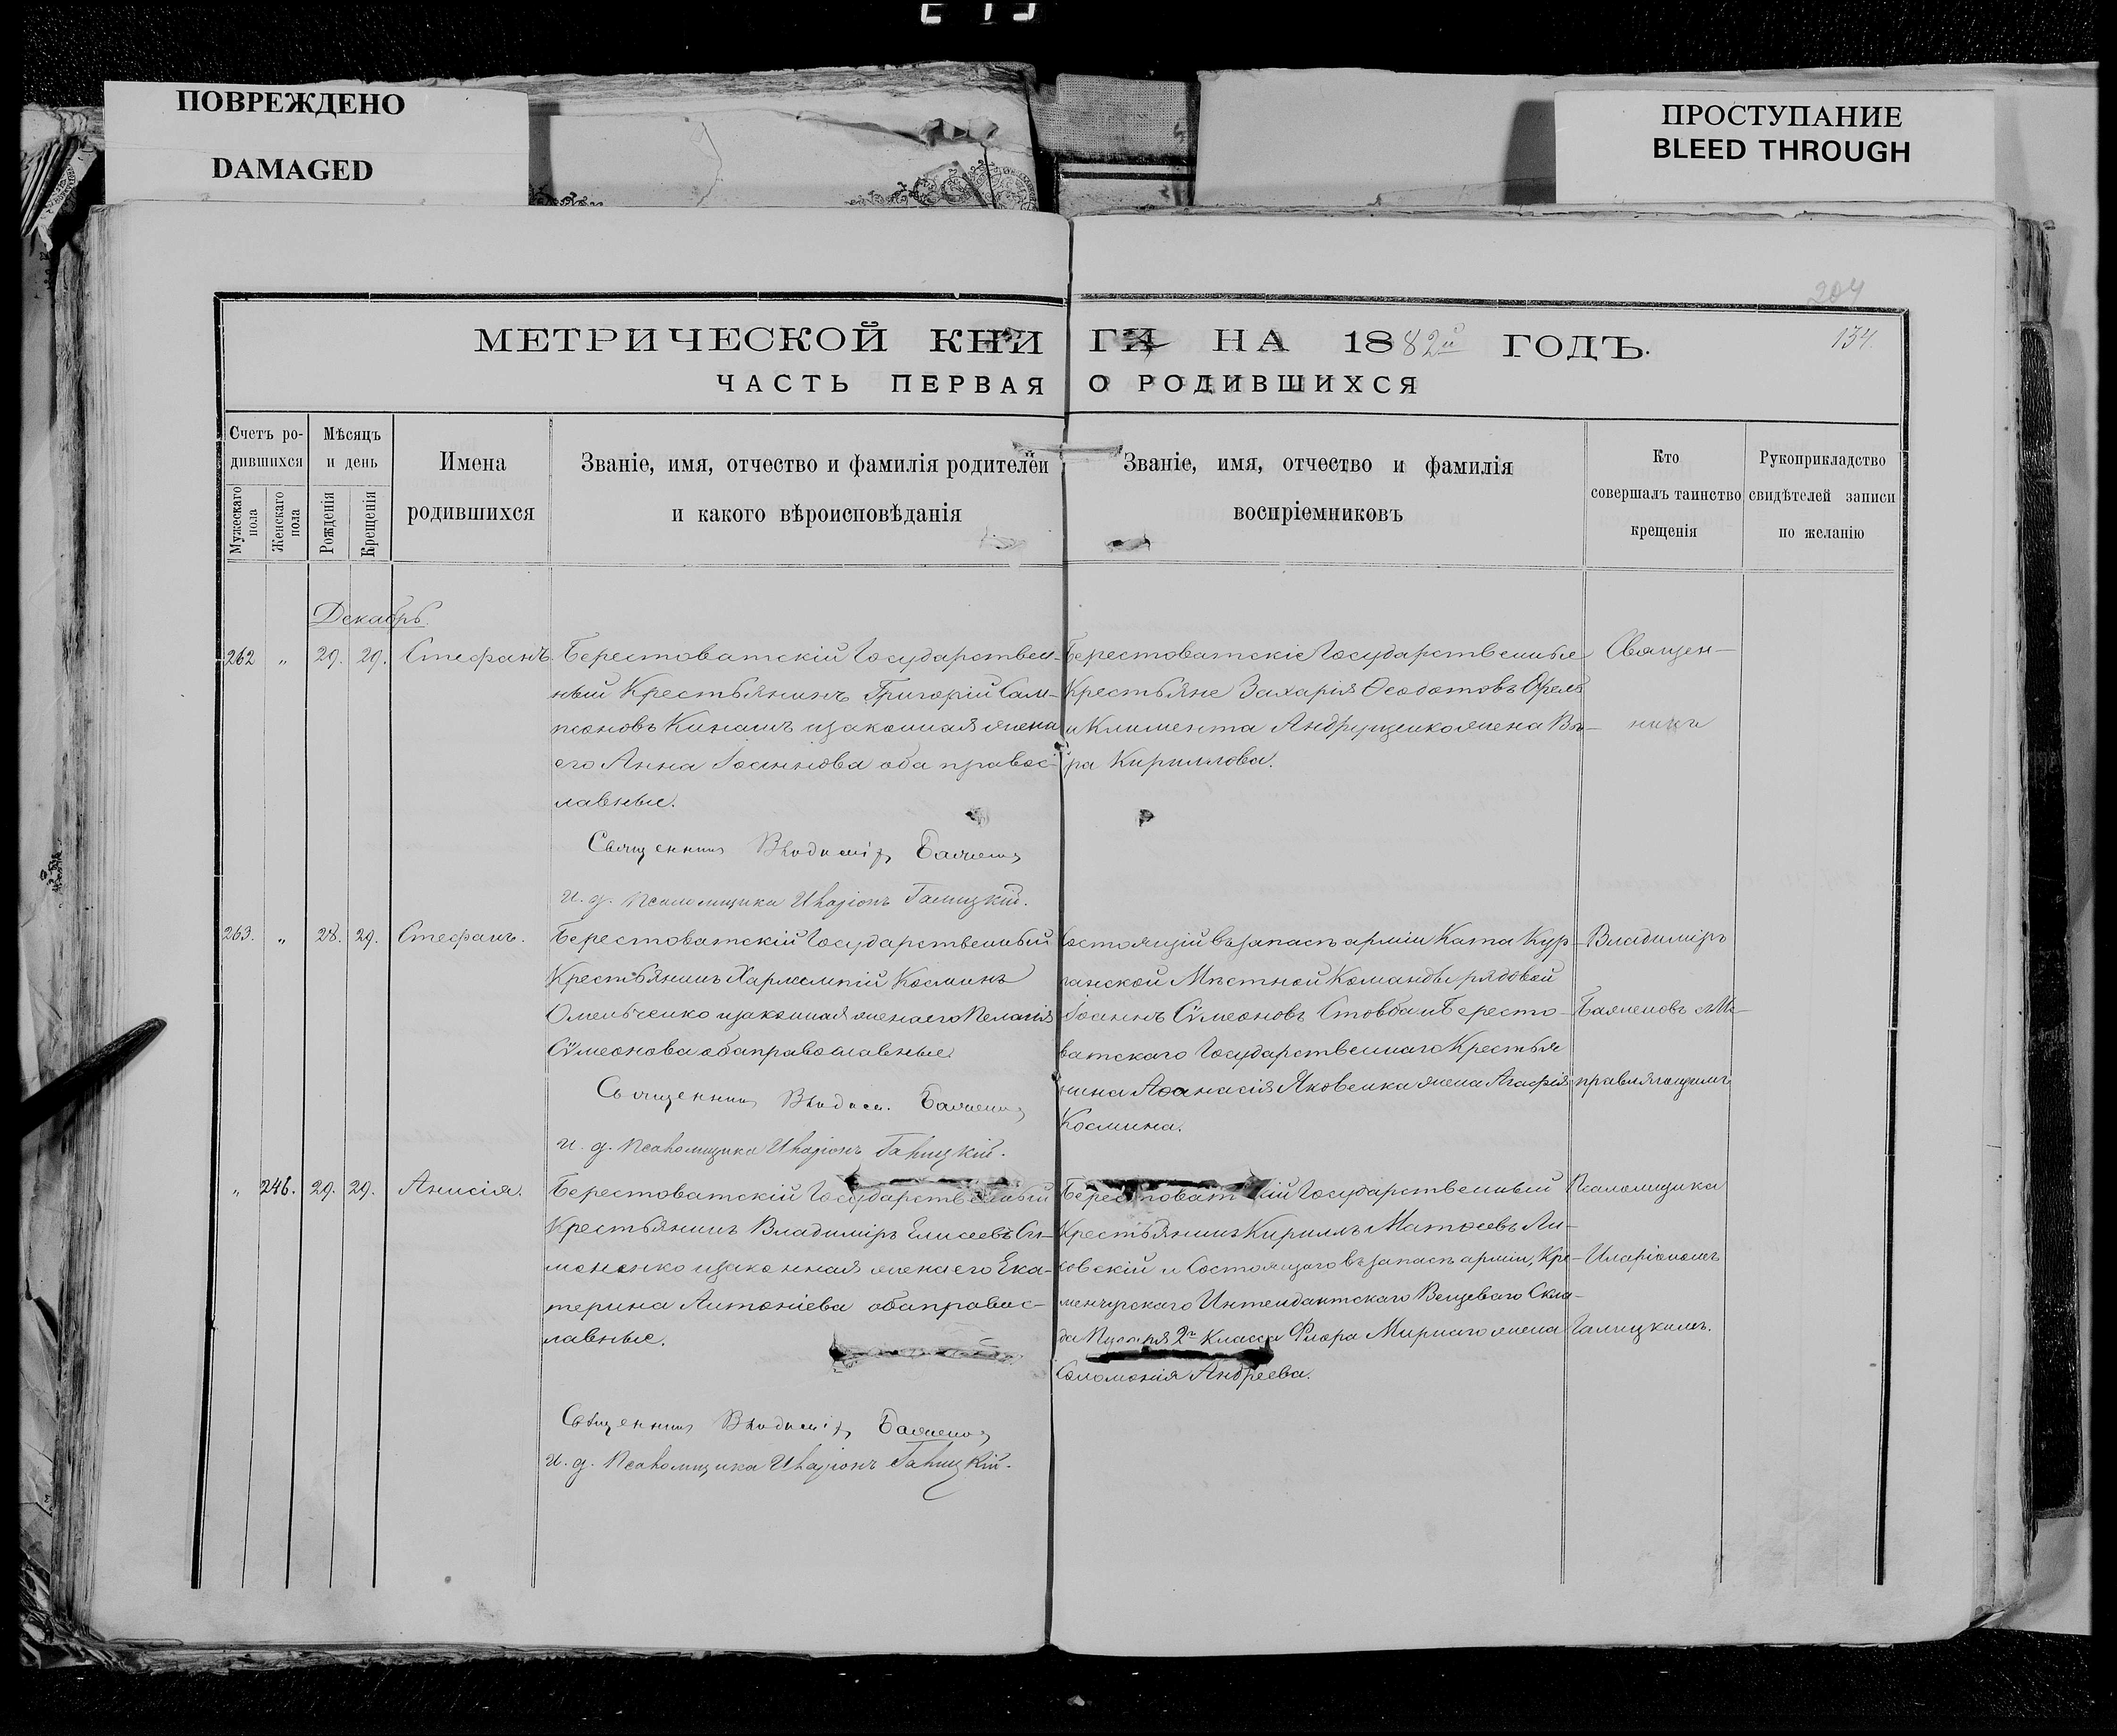 ПОВРЕЖДЕНО
DAMAGED
ПРОСТУПАНИЕ
BLEED THROUGH
204
134.
МЕТРИЧЕСКОЙ КНИГИ НА 1882й ГОДЪ.
ЧАСТЬ ПЕРВАЯ О РОДИВШИХСЯ
Счетъ родившихся
Мужескаго пола
Женскаго пола
Мѣсяцъ и день
Рожденія
Крещенія
Имена
родившихся
Званіе, имя, отчество и фамилія родителей
и какого вѣроисповѣданія
Званіе, имя, отчество и фамилія
воспріемниковъ
Кто
совершалъ таинство
крещенія
Рукоприкладство
свидѣтелей записи
по желанію
Декабрь.
262 „ 29. 29. Стефанъ.
Берестоватскій Государствен-
ный Крестьянинъ Григорій Сам-
псоновъ Кинашъ изаконная жена
его Анна Іоаннова оба правос-
лавные.
Священникъ Владиміръ Баженовъ
и. д. Псаломщика Иларіонъ Галицкій.
Берестоватскіе Государственные
Крестьяне Захарія Ѳеодотовъ
и Климента Андрущенко жена Вѣ-
ра Кириллова.
Священ-
никъ
263. „ 28. 29. Стефанъ.
Берестоватскій Государственный
Крестьянинъ Харлампій Косминъ
Омельченко изаконная женаего Пелагія
Сѵмеонова обаправославные.
Священникъ Владим. Баженовъ
и. д. Псаломщика Иларіонъ Галицкій.
Состоящій въ запасѣ арміи Ката Кур-
ганской Мѣстной Команды рядовой
Іоаннъ Сѵмеоновъ Стовба и Бересто-
ватскаго Государственнаго Крестья
нина Аѳанасія Яковенка жена Агафія
Космина.
Владиміръ
Баженовъ
правляющимъ
„ 246. 29. 29. Анисія.
Берестоватскій Государственный
Крестьянинъ Владиміръ Елисеевъ Си-
моненко изаконная женаего Ека-
терина Антоніева обаправос-
лавные.
Священникъ Владиміръ Баженовъ
и. д. Псаломщика Иларіонъ Галицкій.
Берестоватскій Государственный
Крестьянинъ Кириллъ Матѳеевъ Ли-
совскій и Состоящаго въ запасѣ арміи, Кре-
менчугскаго Интендантскаго Вещеваго Скла-
да Писаря 2го Класса Флора Мирнаго жена
Соломонія Андреева.
Псаломщика
Иларіономъ
Галицкимъ.